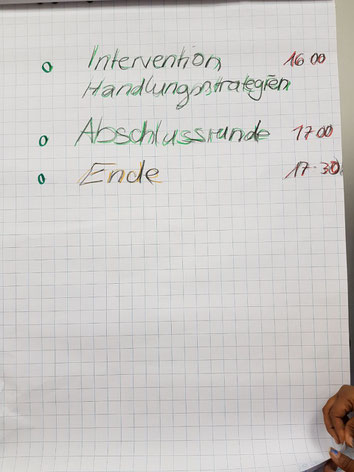 o Intervention 16 00
Handlungsstrategien
o Abschlussrunde 17 00
o Ende 17.30